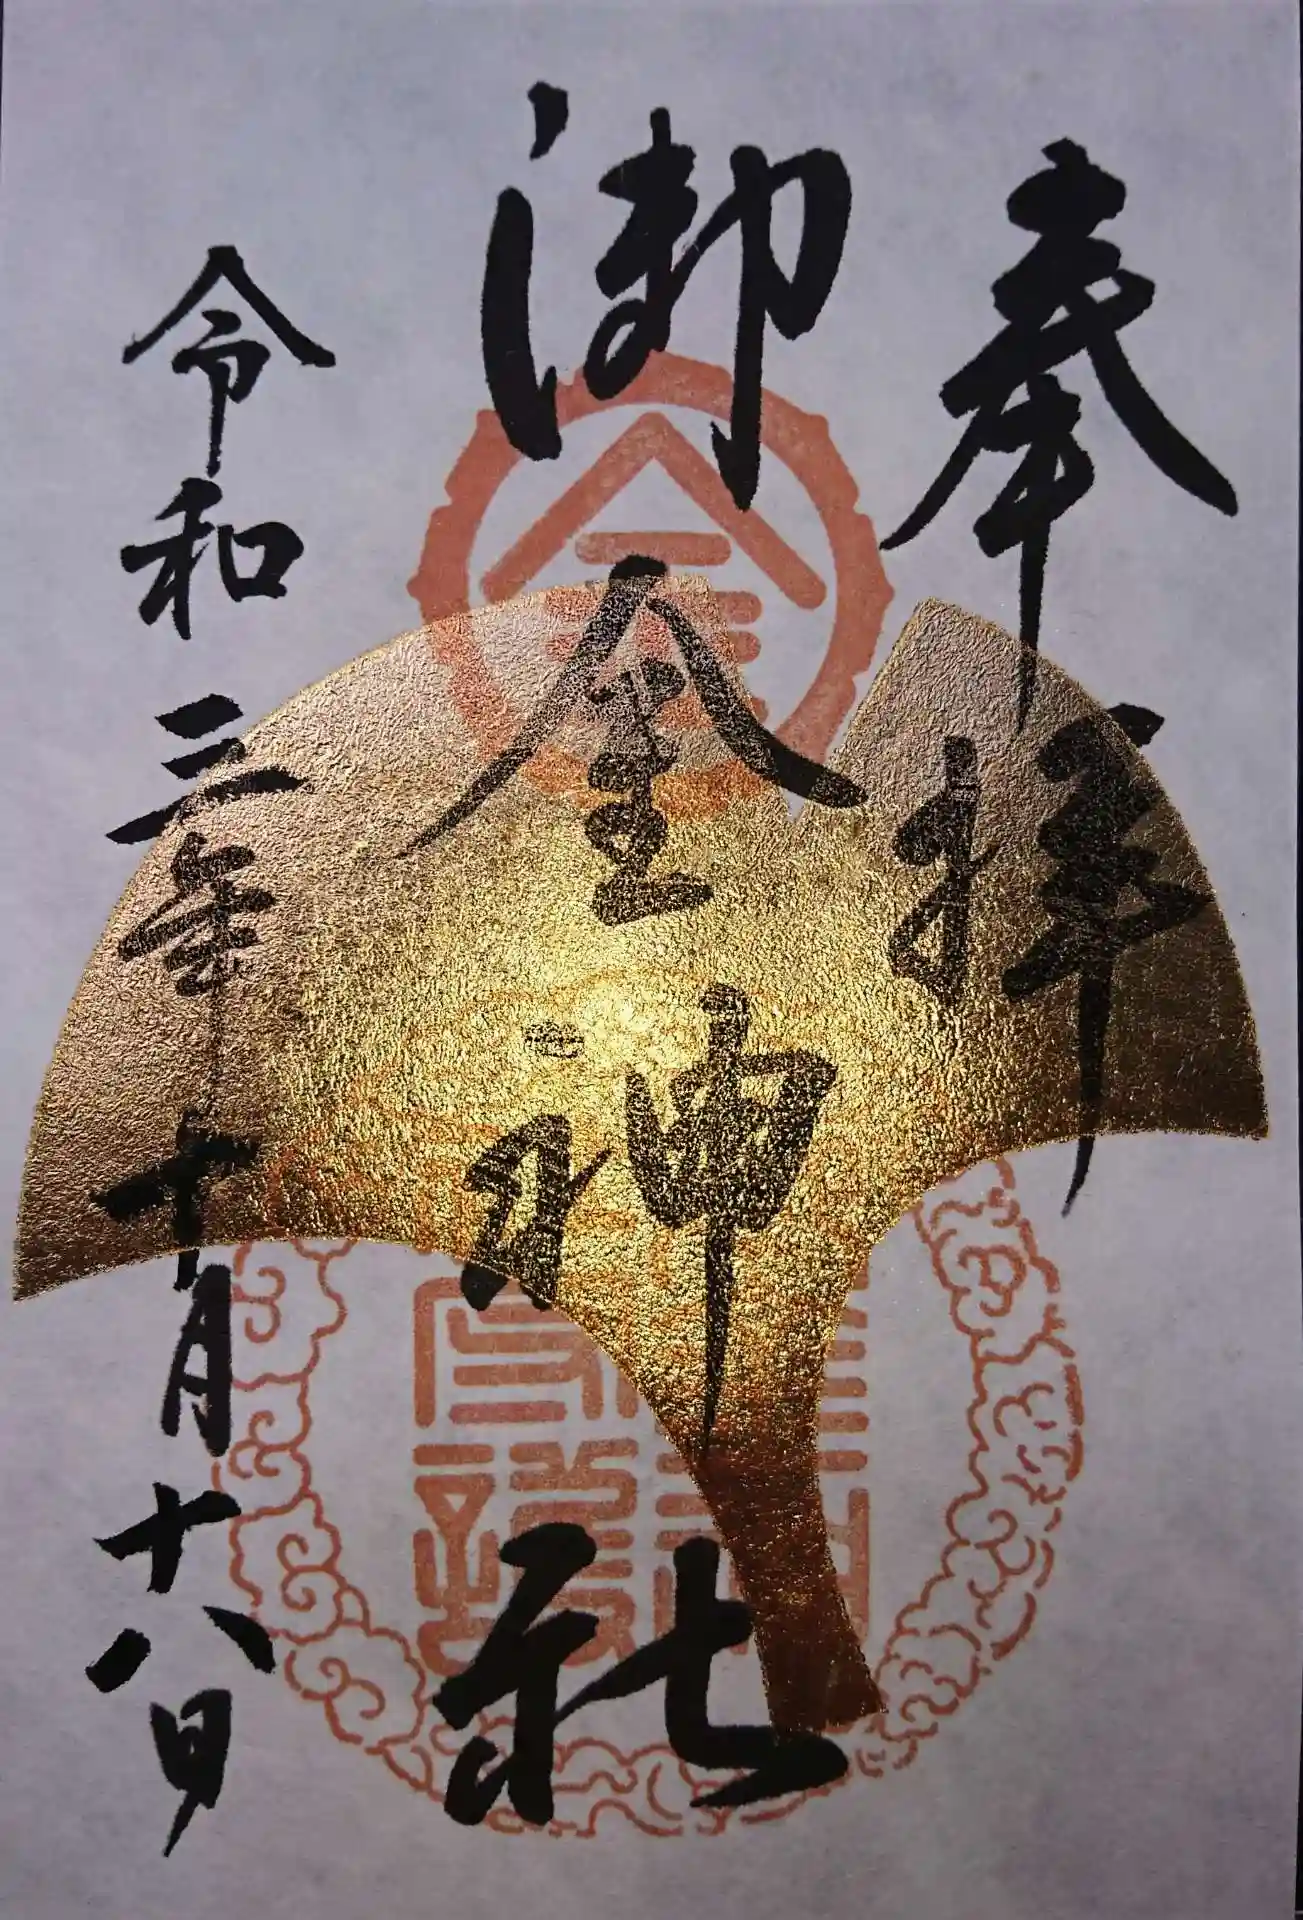 奉拝
御金神社
令和三年十月十八日